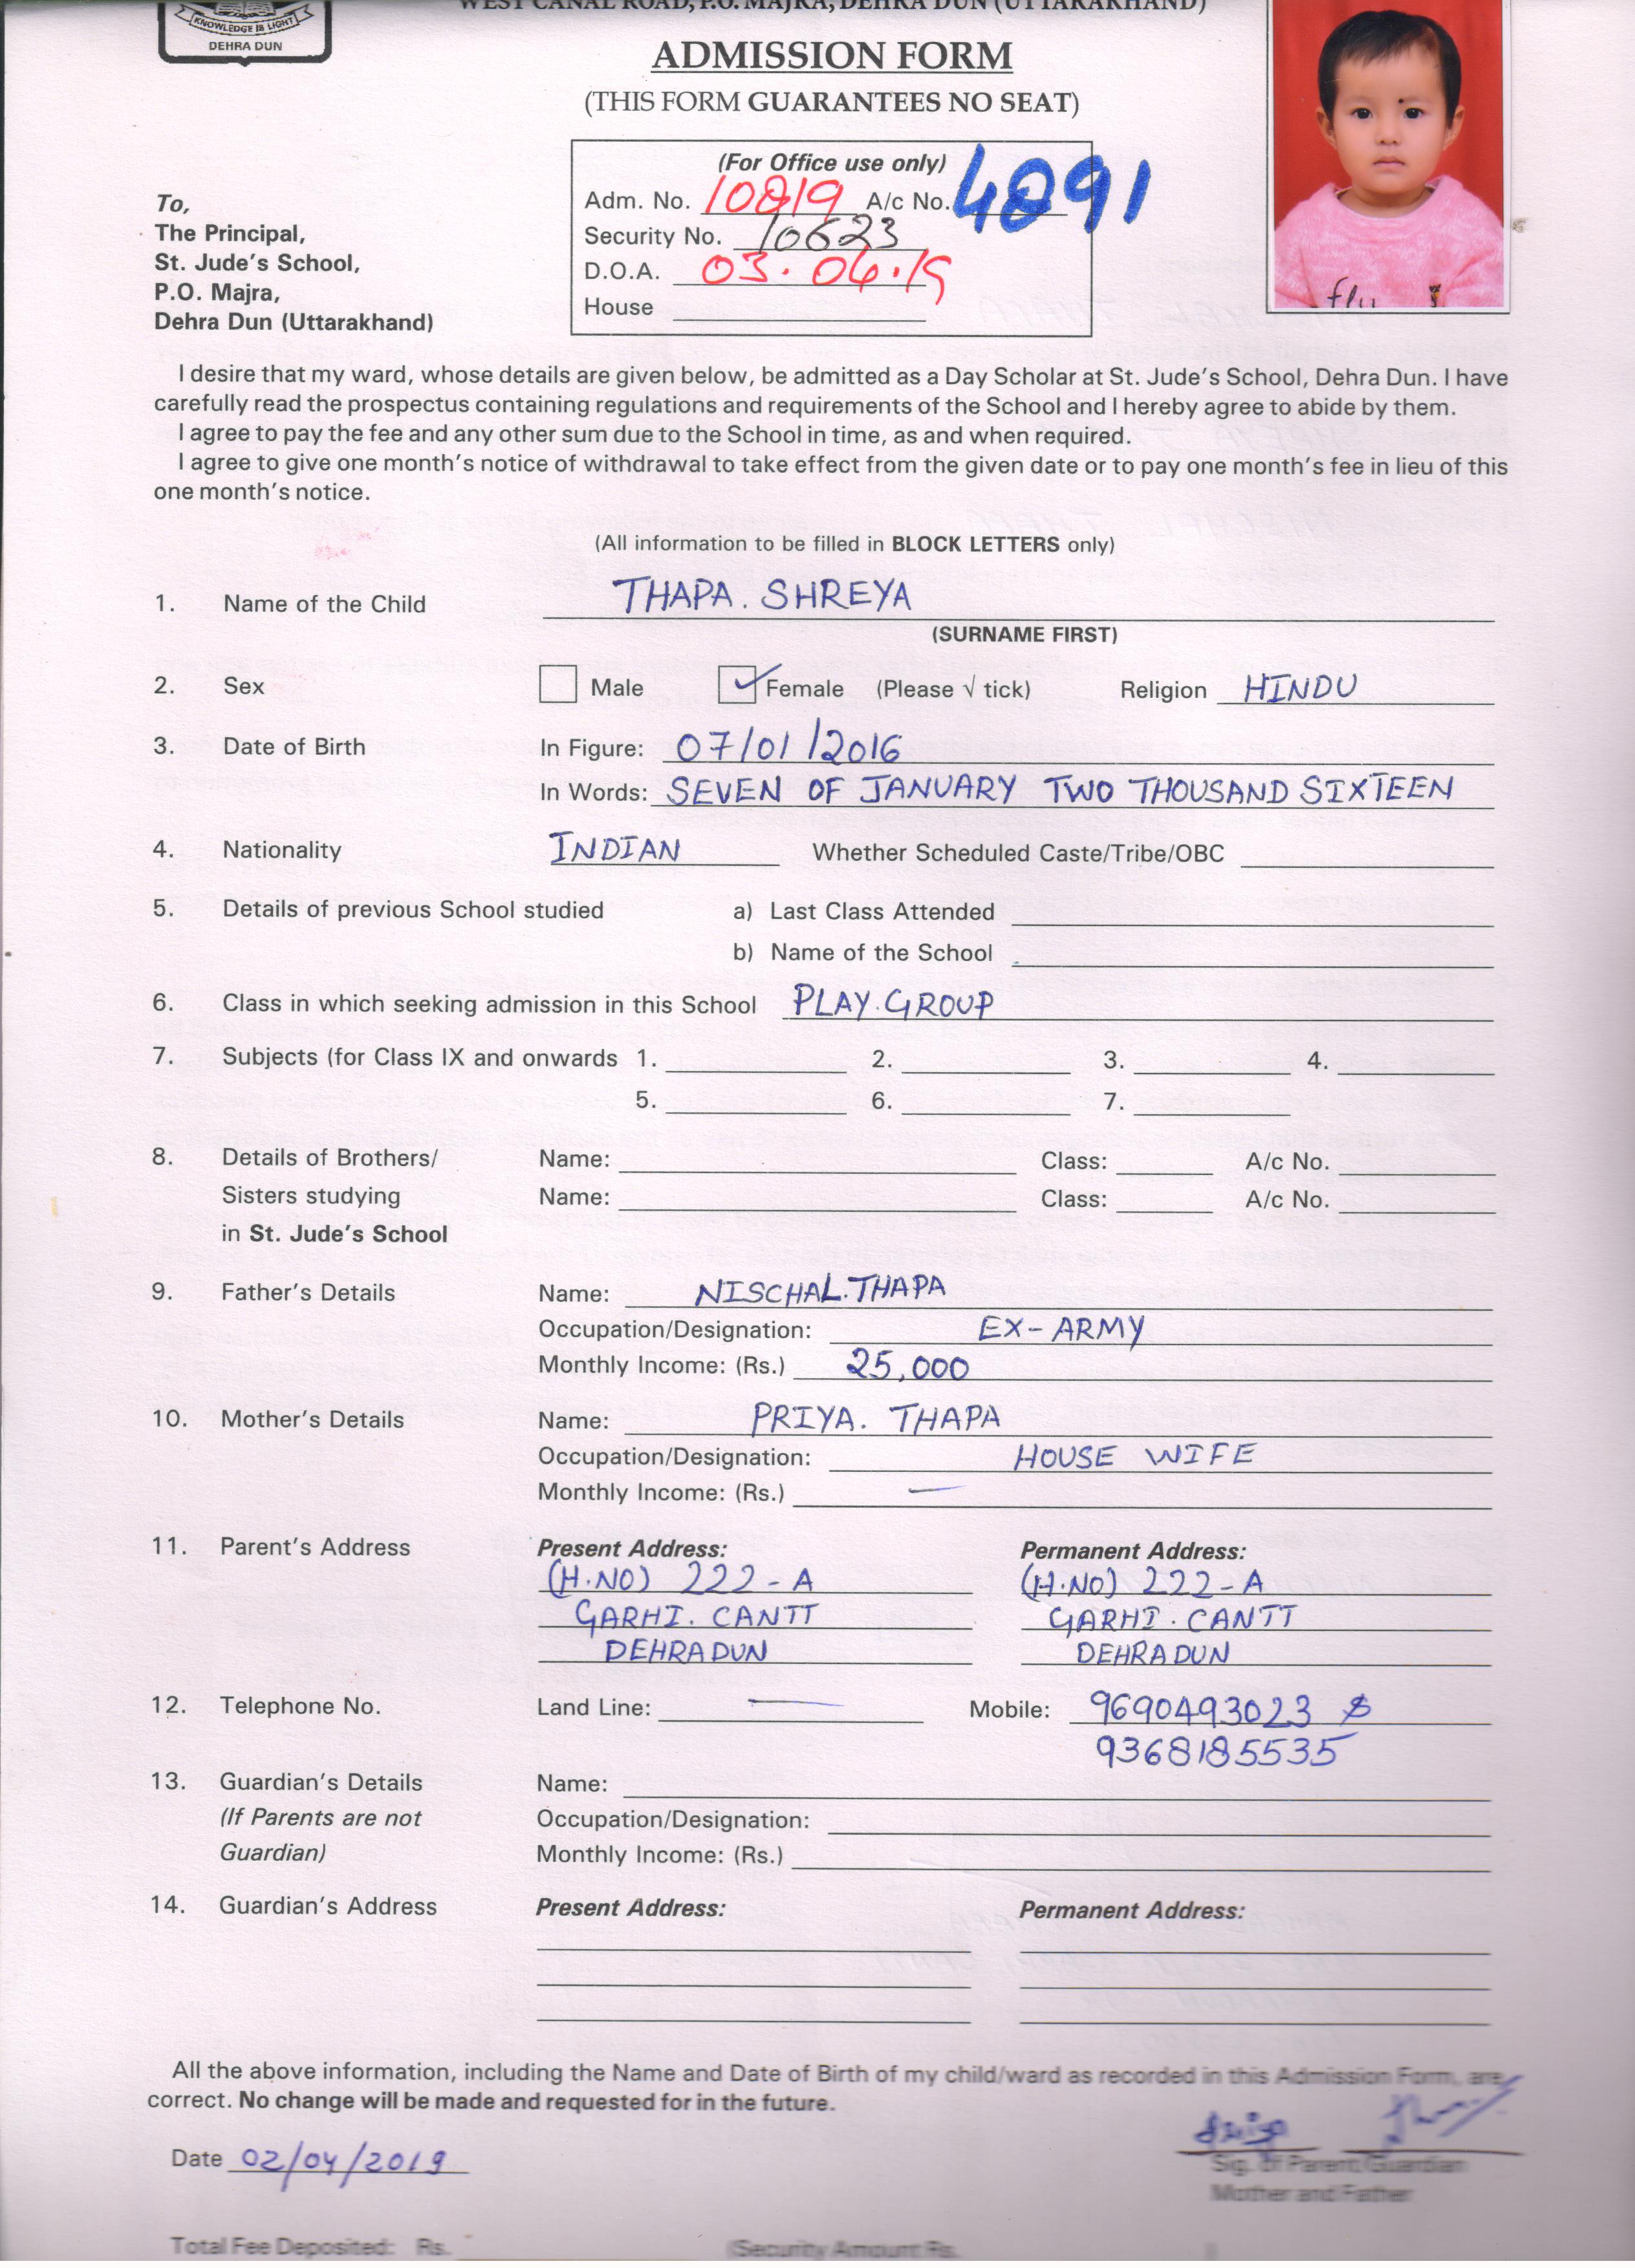 KNOWLEDGE IS LIGHT
DEHRA DUN
WEST CANAL ROAD, P.O. MAJRA, DEHRA DUN (UTTARAKHAND)
ADMISSION FORM
(THIS FORM GUARANTEES NO SEAT)
(For Office use only)
Adm. No. 10819 A/c No. 4891
Security No. 10623
D.O.A. 03.04.19
House
To,
The Principal,
St. Jude's School,
P.O. Majra,
Dehra Dun (Uttarakhand)
I desire that my ward, whose details are given below, be admitted as a Day Scholar at St. Jude's School, Dehra Dun. I have
carefully read the prospectus containing regulations and requirements of the School and I hereby agree to abide by them.
I agree to pay the fee and any other sum due to the School in time, as and when required.
I agree to give one month's notice of withdrawal to take effect from the given date or to pay one month's fee in lieu of this
one month's notice.
(All information to be filled in BLOCK LETTERS only)
1. Name of the Child THAPA. SHREYA
(SURNAME FIRST)
2. Sex Male Female (Please √ tick) Religion HINDU
3. Date of Birth In Figure: 07/01/2016
In Words: SEVEN OF JANUARY TWO THOUSAND SIXTEEN
4. Nationality INDIAN Whether Scheduled Caste/Tribe/OBC
5. Details of previous School studied a) Last Class Attended
b) Name of the School
6. Class in which seeking admission in this School PLAY.GROUP
7. Subjects (for Class IX and onwards 1. 2. 3. 4.
5. 6. 7.
8. Details of Brothers/ Name: Class: A/c No.
Sisters studying Name: Class: A/c No.
in St. Jude's School
9. Father's Details Name: NISCHAL.THAPA
Occupation/Designation: EX-ARMY
Monthly Income: (Rs.) 25,000
10. Mother's Details Name: PRIYA. THAPA
Occupation/Designation: HOUSE WIFE
Monthly Income: (Rs.) —
11. Parent's Address Present Address: Permanent Address:
(H.NO) 222-A (H.NO) 222-A
GARHI. CANTT GARHI. CANTT
DEHRADUN DEHRADUN
12. Telephone No. Land Line: — Mobile: 9690493023 &
9368185535
13. Guardian's Details Name:
(If Parents are not Occupation/Designation:
Guardian) Monthly Income: (Rs.)
14. Guardian's Address Present Address: Permanent Address:
All the above information, including the Name and Date of Birth of my child/ward as recorded in this Admission Form, are
correct. No change will be made and requested for in the future.
Date 02/04/2019
Sig. of Parent/Guardian
Mother and Father
Total Fee Deposited: Rs. (Security Amount Rs.